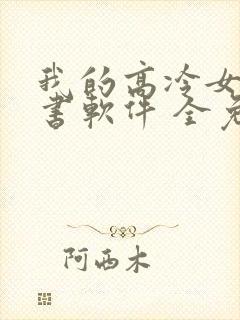 我的高冷女
書軟件 全免
阿西木